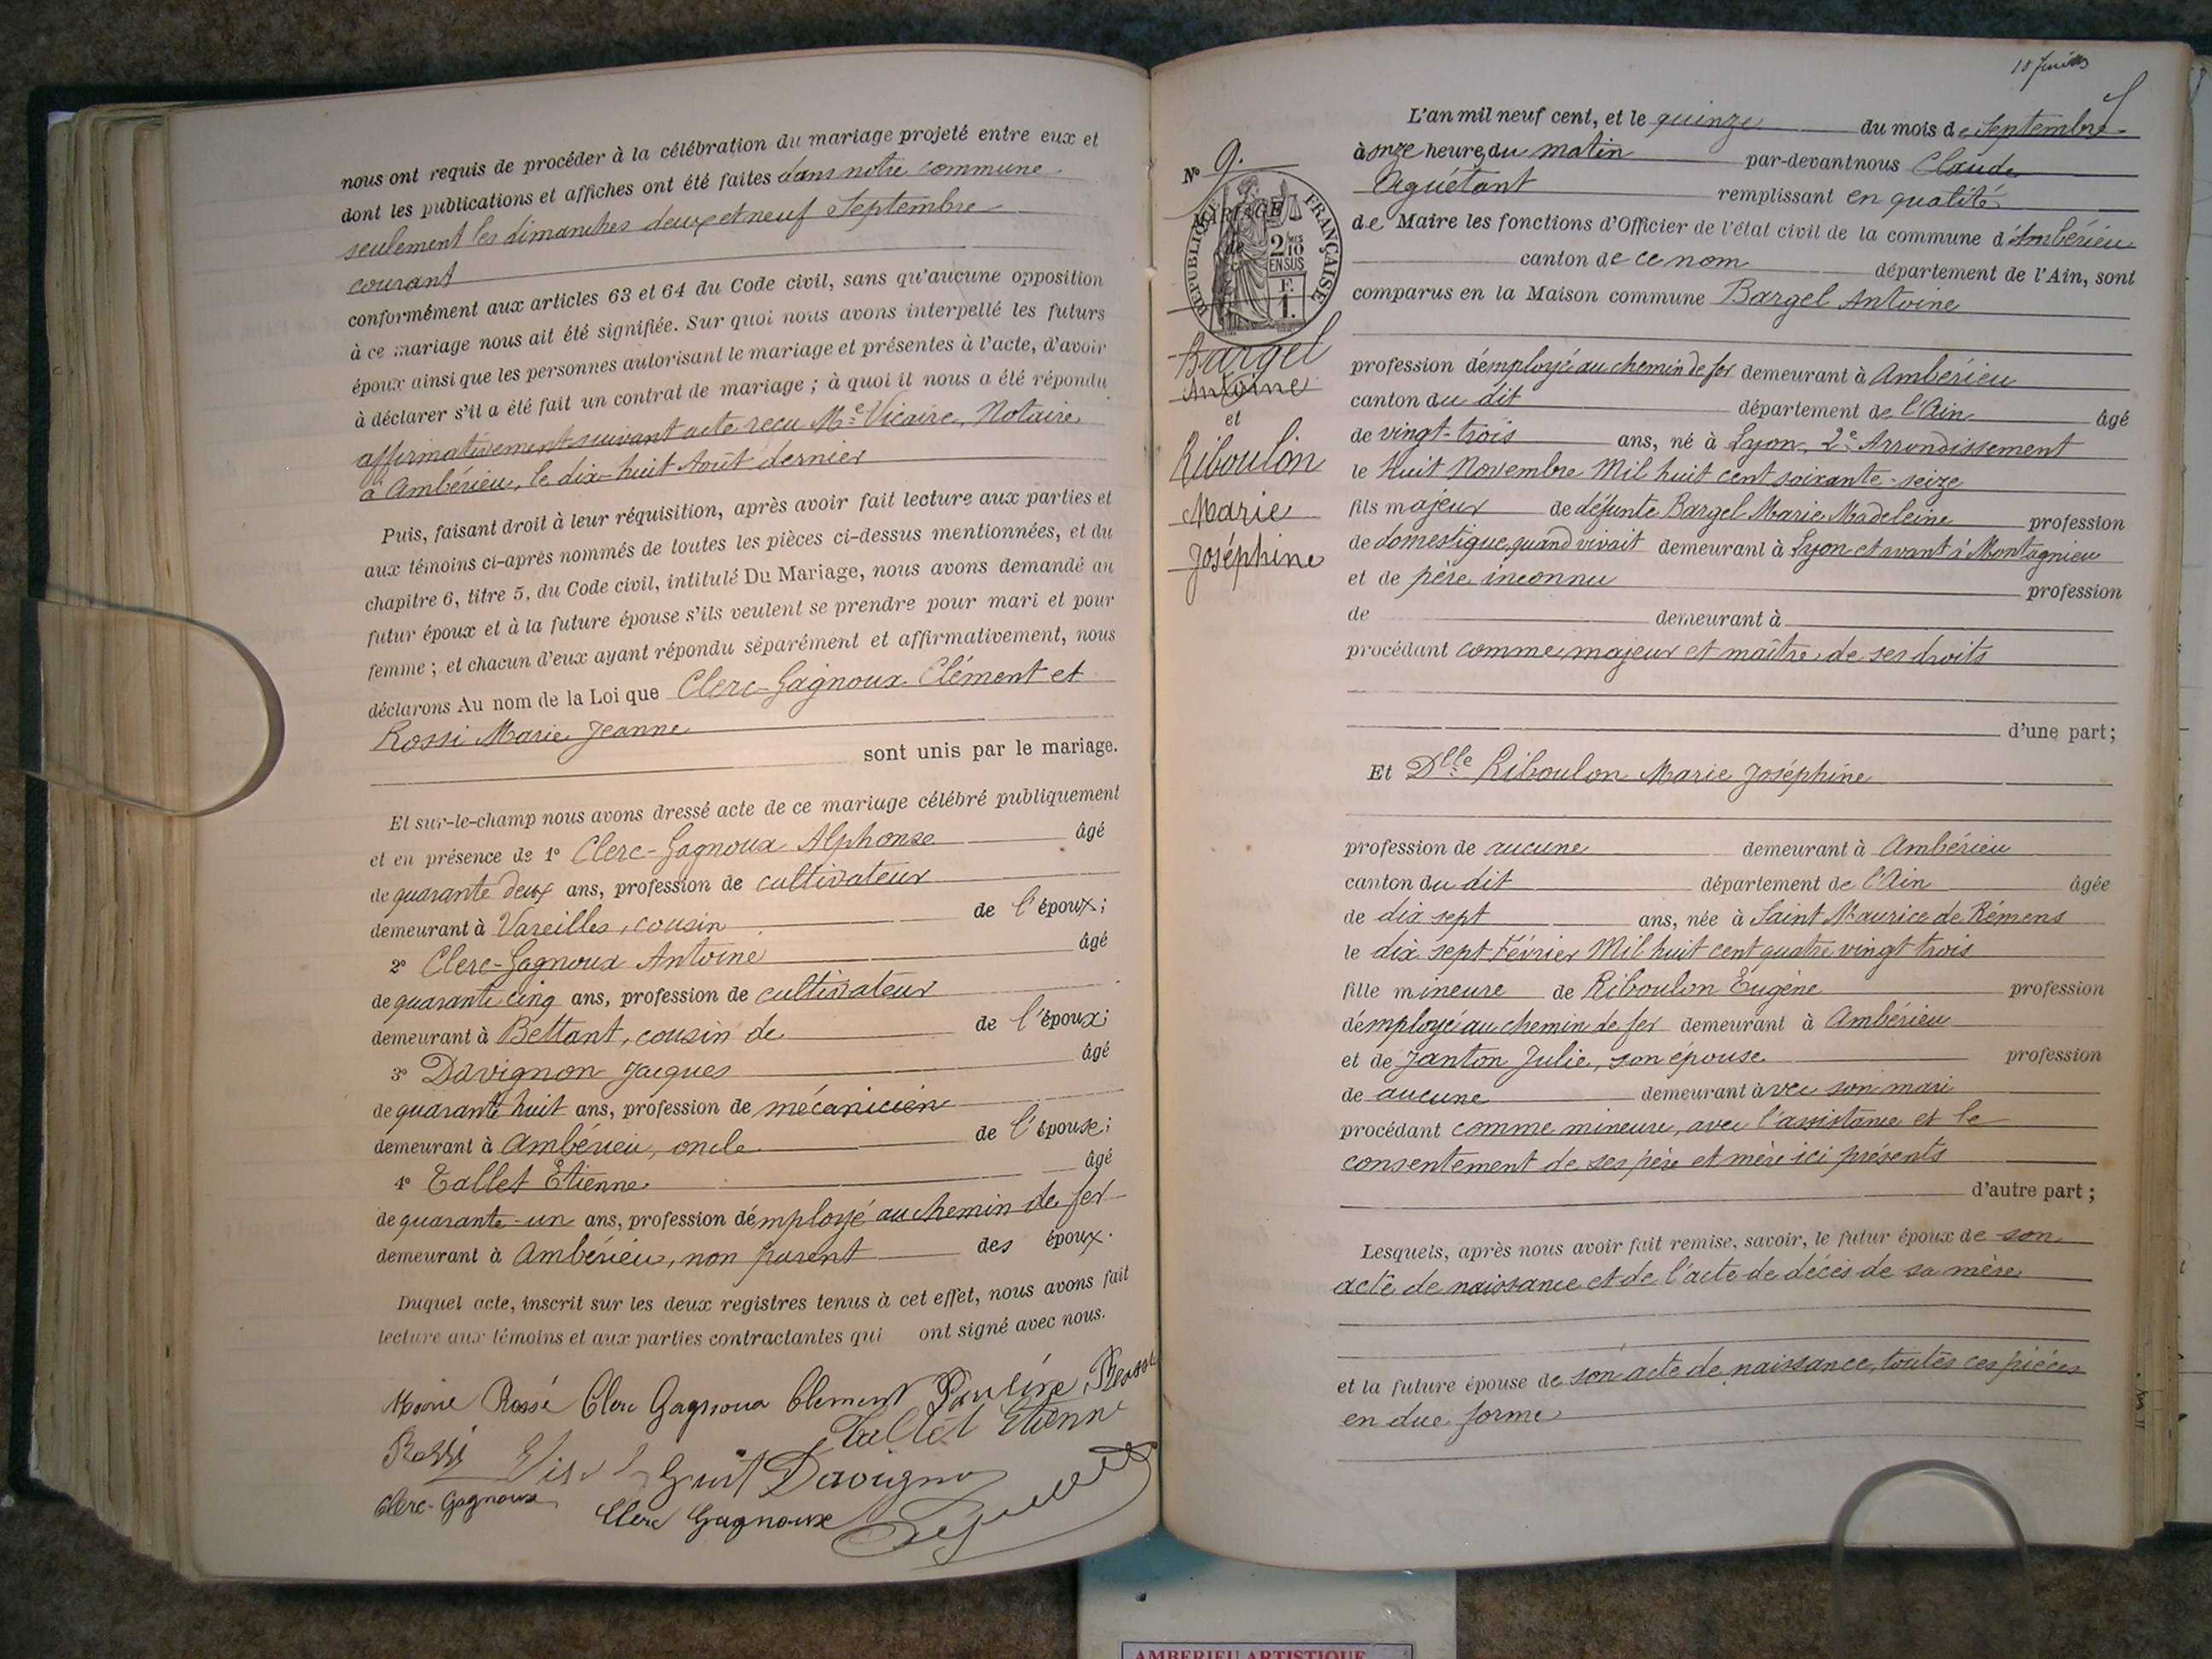 nous ont requis de procéder à la célébration du mariage projeté entre eux et
dont les publications et affiches ont été faites dans notre commune
seulement les dimanches deux et neuf Septembre
courant
conformément aux articles 63 et 64 du Code civil, sans qu'aucune opposition
à ce mariage nous ait été signifiée. Sur quoi nous avons interpellé les futurs
époux ainsi que les personnes autorisant le mariage et présentes à l'acte, d'avoir
à déclarer s'il a été fait un contrat de mariage ; à quoi il nous a été répondu
affirmativement suivant acte reçu Me Vicaire, Notaire
à Ambérieu, le dix-huit Août dernier
Puis, faisant droit à leur réquisition, après avoir fait lecture aux parties et
aux témoins ci-après nommés de toutes les pièces ci-dessus mentionnées, et du
chapitre 6, titre 5, du Code civil, intitulé Du Mariage, nous avons demandé au
futur époux et à la future épouse s'ils veulent se prendre pour mari et pour
femme ; et chacun d'eux ayant répondu séparément et affirmativement, nous
déclarons Au nom de la Loi que Clerc-Gagnoux Clément et
Rossi Marie Jeanne
sont unis par le mariage.
Et sur-le-champ nous avons dressé acte de ce mariage célébré publiquement
et en présence de 1° Clerc-Gagnoux Alphonse âgé
de quarante deux ans, profession de cultivateur
demeurant à Vareilles, cousin de l'époux ;
2° Clerc-Gagnoux Antoine âgé
de quarante cinq ans, profession de cultivateur
demeurant à Bettant, cousin de de l'époux ;
3° Davignon Jacques âgé
de quarante huit ans, profession de mécanicien
demeurant à Ambérieu, oncle de l'épouse ;
4° Tallet Etienne âgé
de quarante-un ans, profession d'employé au chemin de fer
demeurant à Ambérieu, non parent des époux.
Duquel acte, inscrit sur les deux registres tenus à cet effet, nous avons fait
lecture aux témoins et aux parties contractantes qui ont signé avec nous.
Marie Rossi Clerc Gagnoux Clement Pauline
Rossi Tallet Etienne
Davignon
Clerc-Gagnoux Clerc Gagnoux
L'an mil neuf cent, et le quinze du mois de Septembre
à onze heures du matin par-devant nous Claude
Aguétant remplissant en qualité
de Maire les fonctions d'Officier de l'état civil de la commune d'Ambérieu
canton de ce nom département de l'Ain, sont
comparus en la Maison commune Bargel Antoine
profession d'employé au chemin de fer demeurant à Ambérieu
canton du dit département de l'Ain âgé
de vingt-trois ans, né à Lyon, 2e Arrondissement
le huit Novembre Mil huit cent soixante-seize
fils majeur de défunte Bargel Marie Madeleine profession
de domestique, quand vivait demeurant à Lyon et avant à Montagnieu
et de père inconnu profession
de demeurant à
procédant comme majeur et maître de ses droits
d'une part ;
Et Dlle Riboulon Marie Joséphine
profession de aucune demeurant à Ambérieu
canton du dit département de l'Ain âgée
de dix sept ans, née à Saint Maurice de Rémens
le dix sept Février Mil huit cent quatre vingt trois
fille mineure de Riboulon Eugène profession
d'employé au chemin de fer demeurant à Ambérieu
et de Janton Julie, son épouse profession
de aucune demeurant avec son mari
procédant comme mineure, avec l'assistance et le
consentement de ses père et mère ici présents
d'autre part ;
Lesquels, après nous avoir fait remise, savoir, le futur époux de son
acte de naissance et de l'acte de décès de sa mère
et la future épouse de son acte de naissance, toutes ces pièces
en due forme
N° 9.
MARIAGE
de
RÉPUBLIQUE FRANÇAISE
2/10 MES
EN SUS
F.
1.
Bargel
Antoine
et
Riboulon
Marie
Joséphine
AMBERIEU ARTISTIQUE